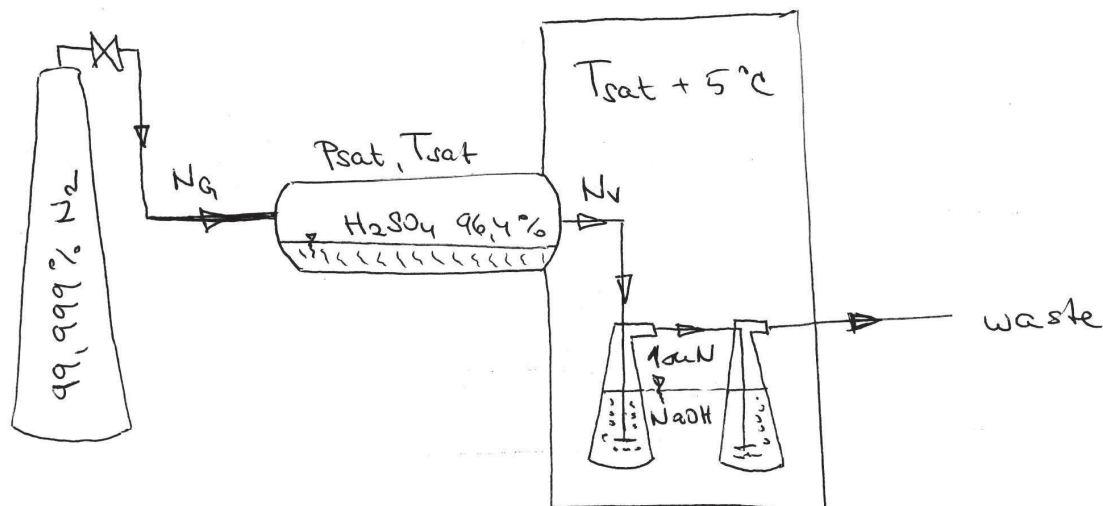 99,999% N2
NG
Psat, Tsat
H2SO4 96,4%
NV
Tsat + 5°C
NaOH
waste